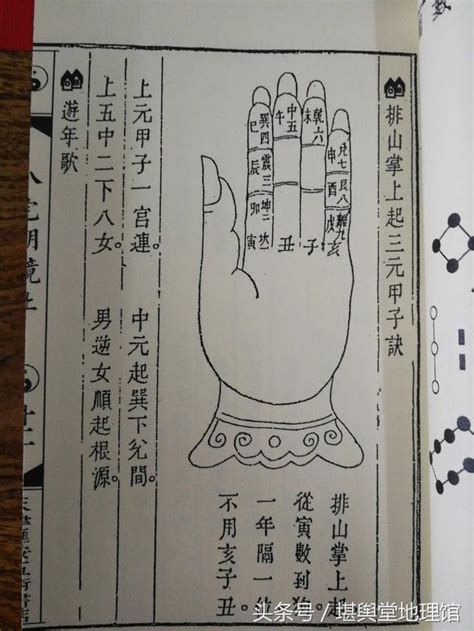 排山掌上起三元甲子訣
兌七
申
艮八
酉
離九
戌
亥
乾六
未
子
中五
午
丑
巽四
巳
震三
辰
坤二
卯
坎
寅
排山掌上起
從寅數到狗
一年隔一位
不用亥子丑
上元甲子一宮連。 中元起巽下兌間。
上五中二下八女。 男逆女順起根源。
遊年歌
八宅明鏡上
廿一
头条号 / 堪舆堂地理馆